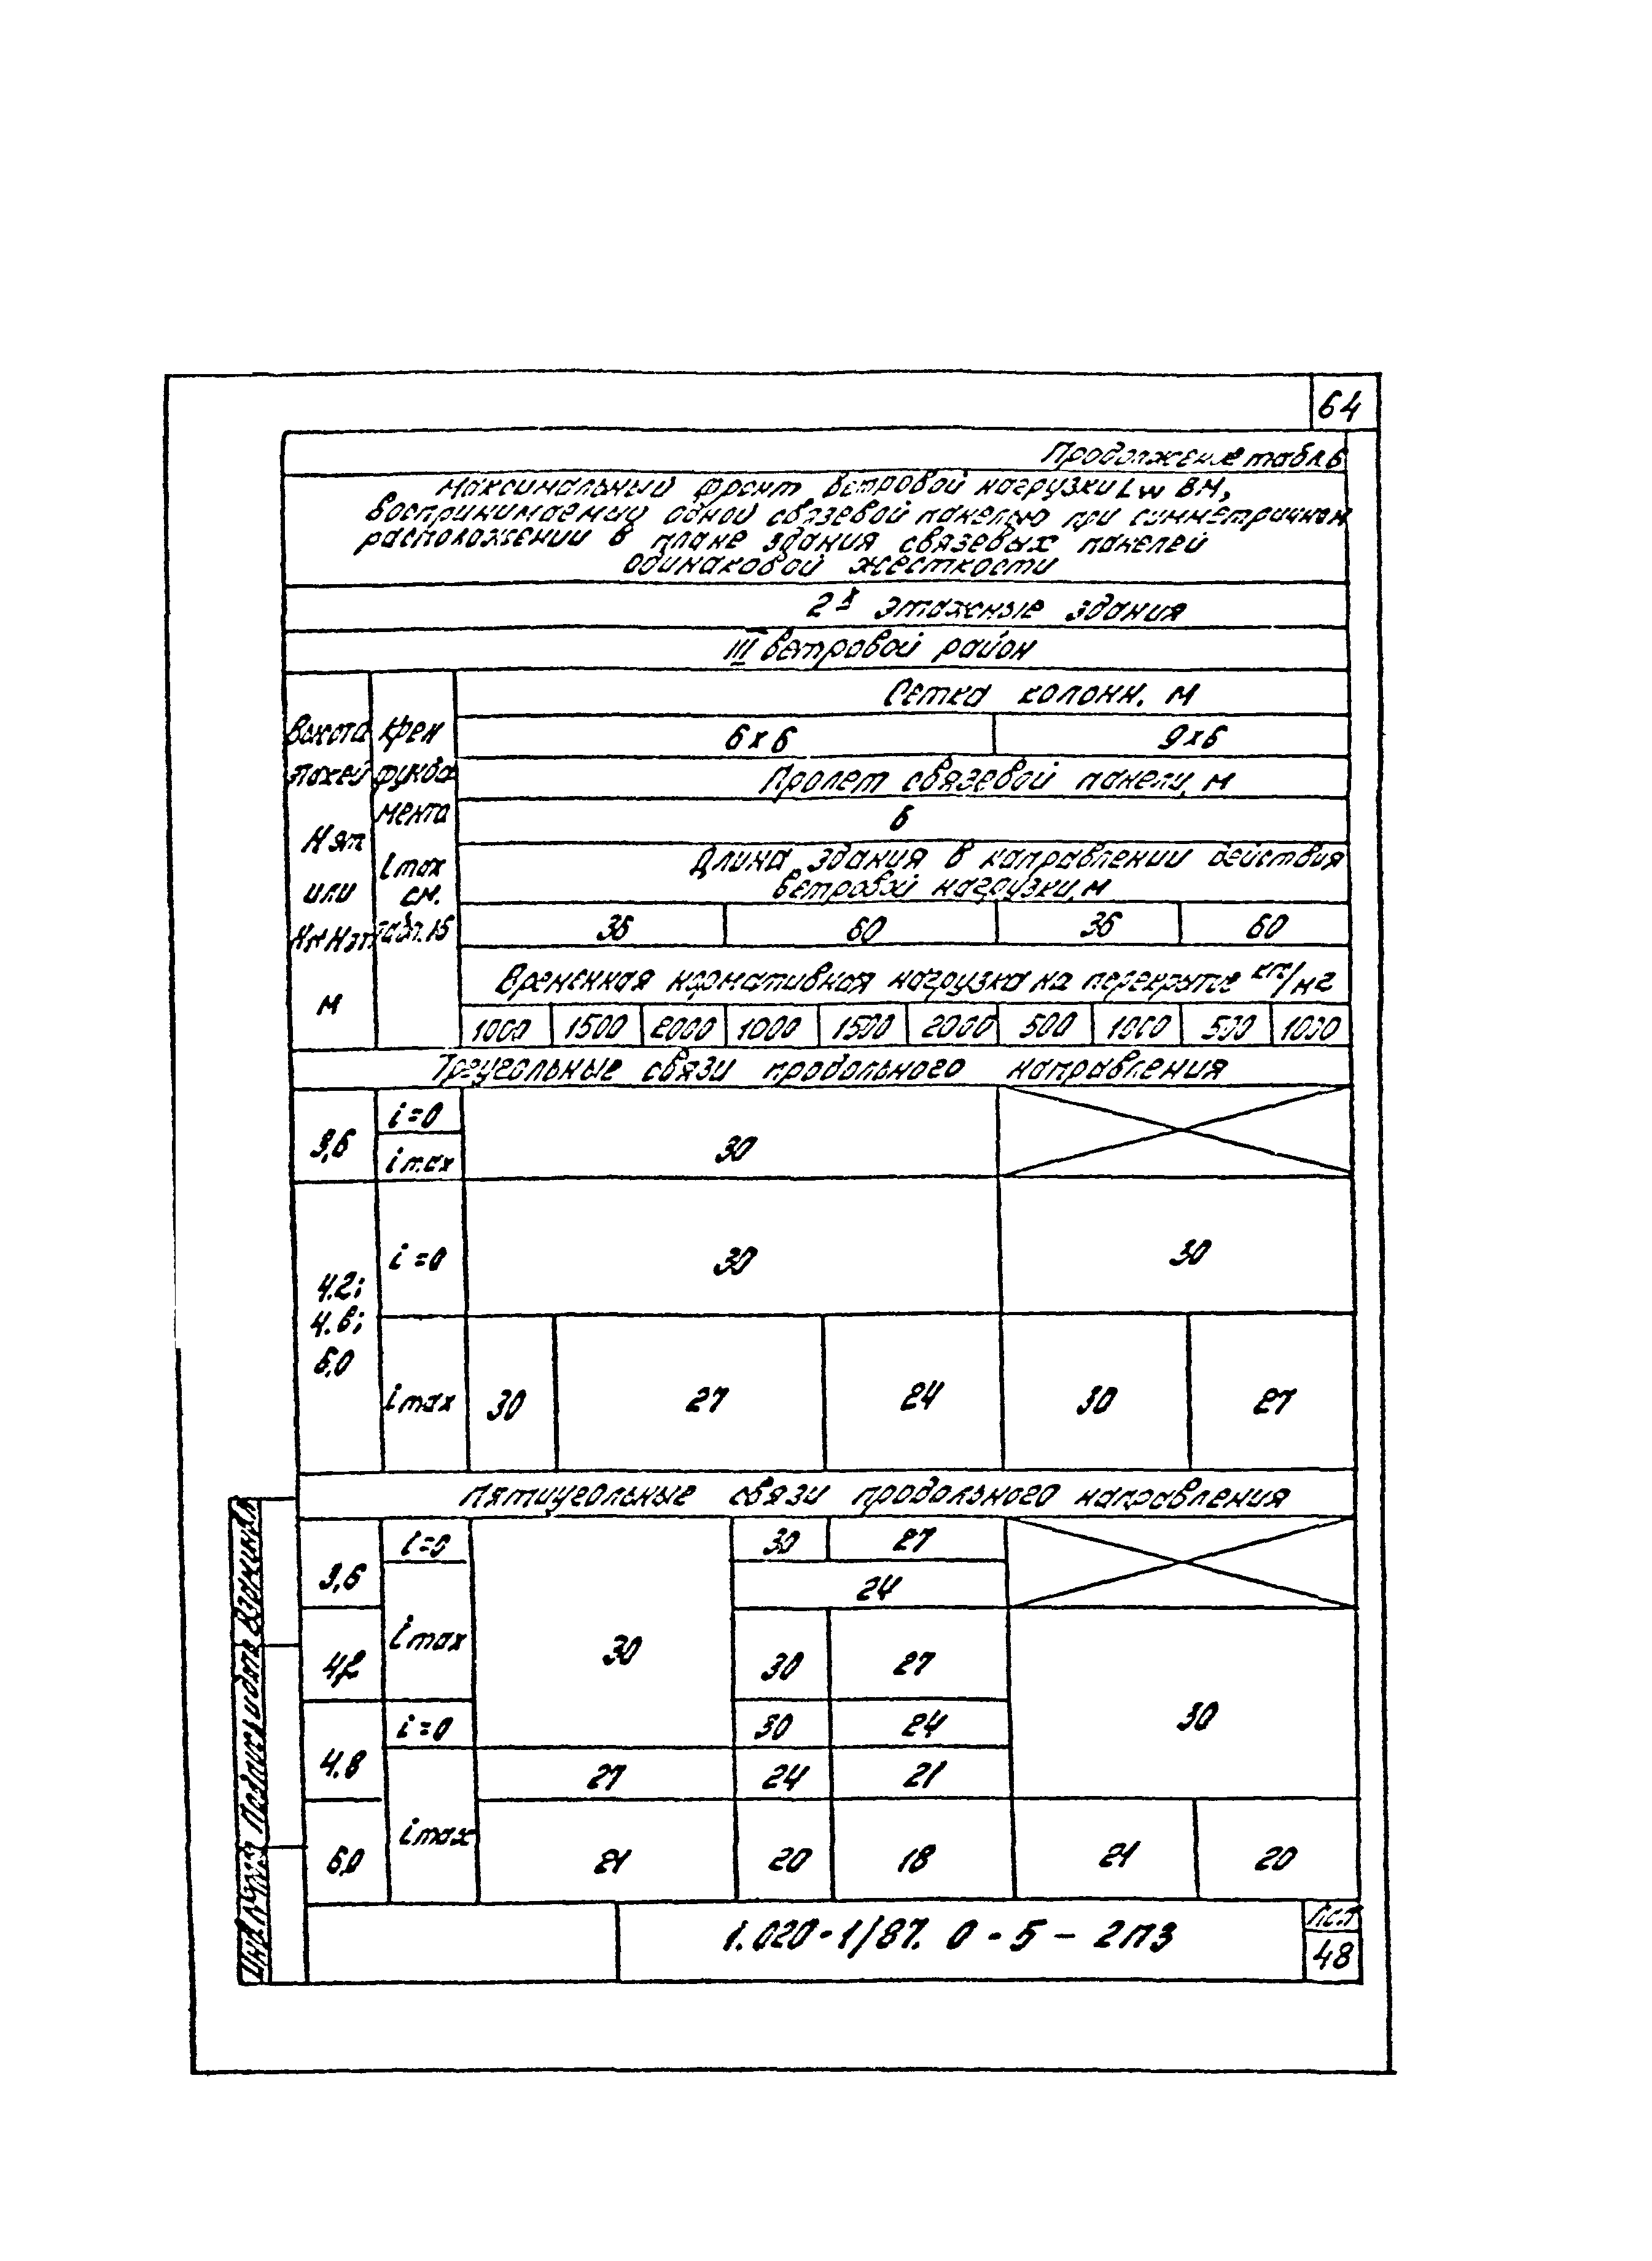 64
Продолжение табл 6
Максимальный фронт ветровой нагрузки Lw в м,
воспринимаемый одной связевой панелью при симметричном
расположении в плане здания связевых панелей
одинаковой жесткости
2х этажные здания
III ветровой район
Высота этажей Нэт или Нн Нэт м
Крен фундамента imax см. табл. 15
Сетка колонн, м
6х6 9х6
Пролет связевой панели, м
6
Длина здания в направлении действия
ветровой нагрузки, м
36 60 36 60
Временная нормативная нагрузка на перекрытие кгс/м2
1000 1500 2000 1000 1500 2000 500 1000 500 1000
Треугольные связи продольного направления
3,6 i=0
30
imax
4.2; 4.8; 6,0
i=0 30 30
imax 30 27 24 30 27
Пятиугольные связи продольного направления
3,6 i=0 30 27
24
4,2 imax 30 30 27
i=0 30 24 30
4.8 27 24 21
6,0 imax 21 20 18 21 20
1.020-1/87. 0-5-2ПЗ
Лист
48
Подпись и дата